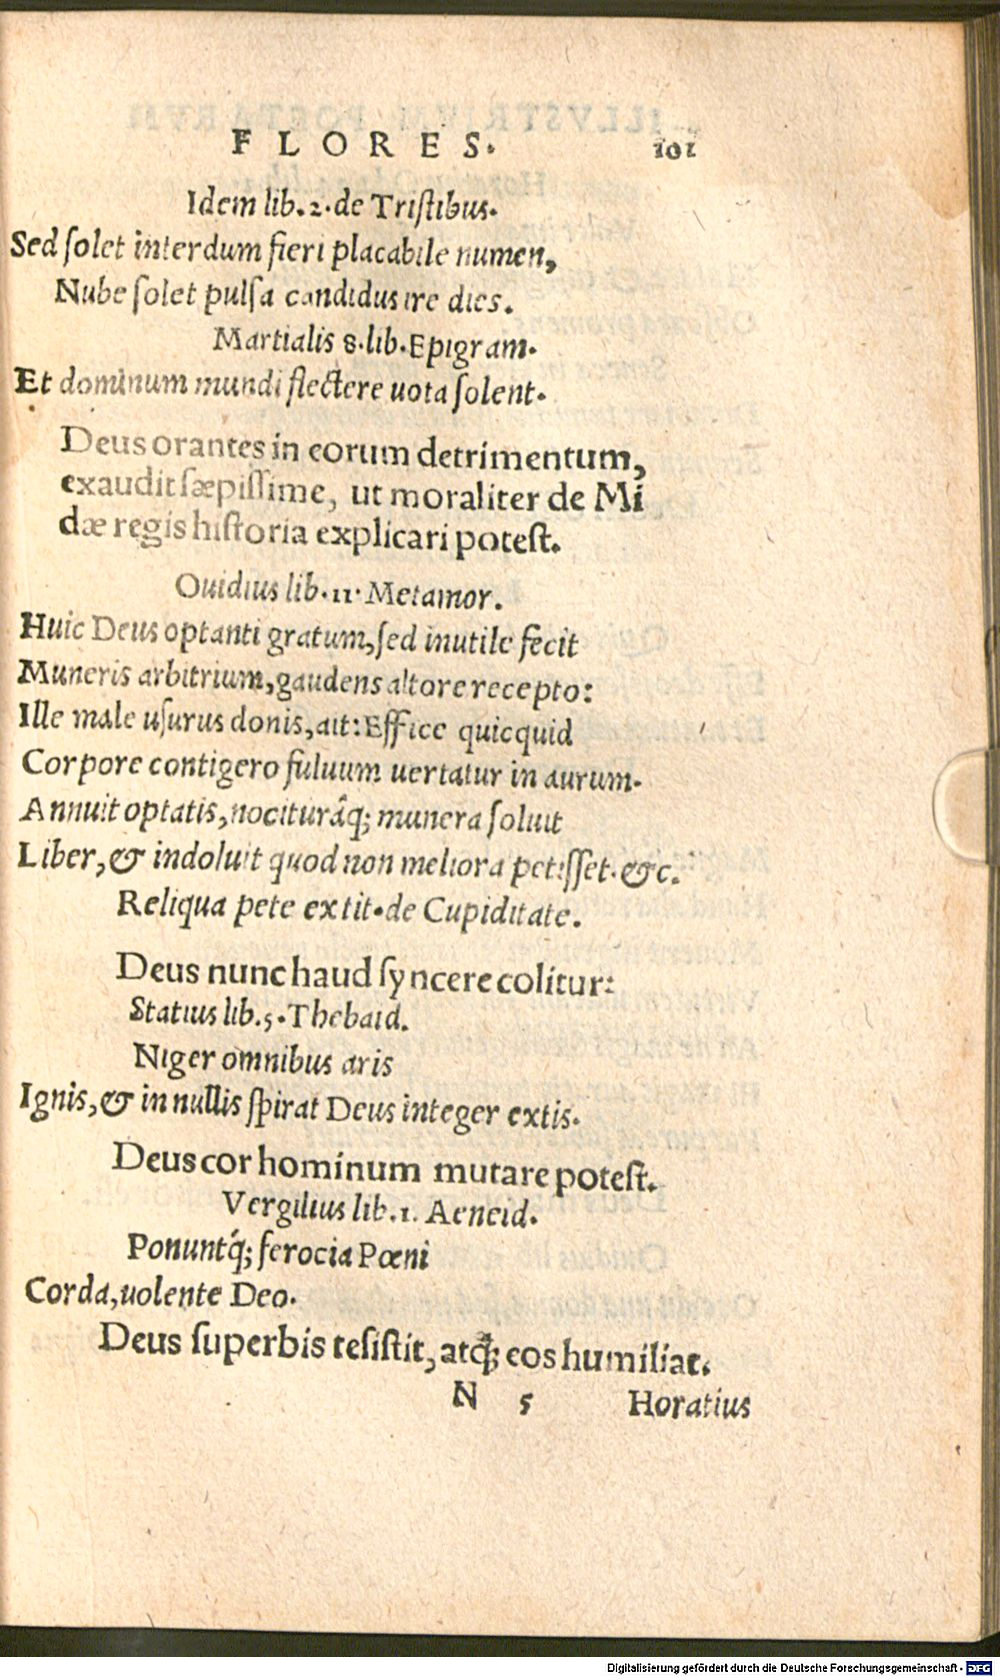 FLORES. 101
Idem lib. 2. de Tristibus.
Sed ſolet interdum fieri placabile numen,
Nube ſolet pulſa candidus ire dies.
Martialis 8. lib. Epigram.
Et dominum mundi flectere uota ſolent.
Deus orantes in eorum detrimentum,
exaudit ſæpiſſime, ut moraliter de Mi
dæ regis hiſtoria explicari poteſt.
Ouidius lib. 11. Metamor.
Huic Deus optanti gratum, ſed inutile fecit
Muneris arbitrium, gaudens altore recepto:
Ille male uſurus donis, ait: Effice quicquid
Corpore contigero fuluum uertatur in aurum.
Annuit optatis, nociturâq; munera ſoluit
Liber, & indoluit quod non meliora petiſſet. &c.
Reliqua pete ex tit. de Cupiditate.
Deus nunc haud ſyncere colitur:
Statius lib. 5. Thebaid.
Niger omnibus aris
Ignis, & in nullis ſpirat Deus integer extis.
Deus cor hominum mutare poteſt.
Vergilius lib. 1. Aeneid.
Ponuntq́; ferocia Pœni
Corda, uolente Deo.
Deus ſuperbis reſiſtit, atq; eos humiliat.
N 5 Horatius
Digitalisierung gefördert durch die Deutsche Forschungsgemeinschaft - DFG